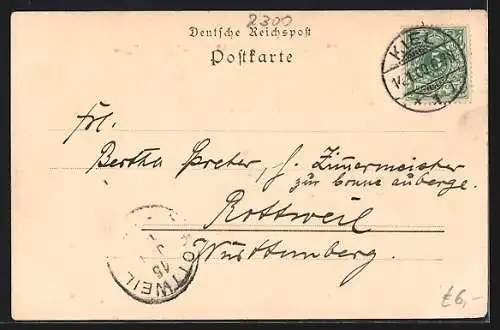 2300
Deutsche Reichspost
Postkarte
KIEL
Frl.
Bertha Preter, z. Zimmermeister
zur bonne auberge.
Rottweil
Württemberg.
ROTTWEIL
15
£6,-